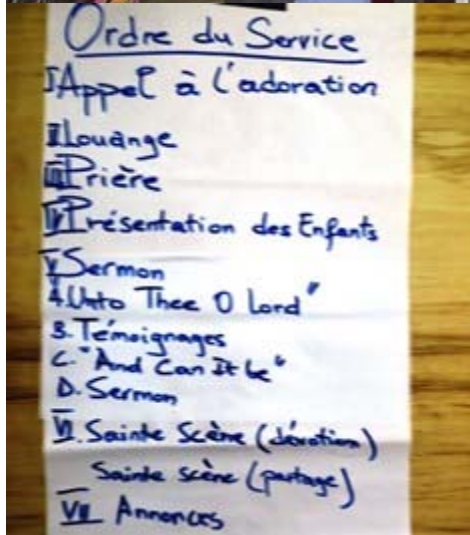 Ordre du Service
I Appel à l'adoration
II Louange
III Prière
IV Présentation des Enfants
V Sermon
A. Unto Thee O Lord"
B. Témoignages
C. "And Can It be"
D. Sermon
VI. Sainte Scène (dévotion)
Sainte scène (partage)
VII Annonces